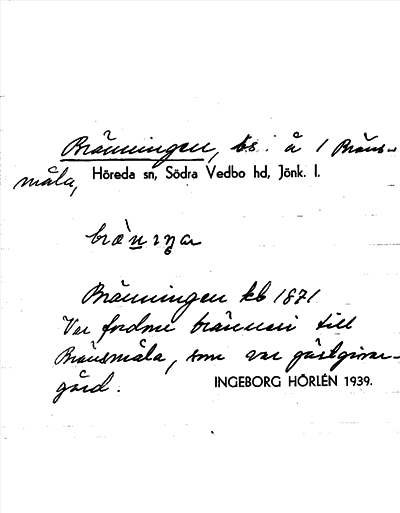 Bränningen, bs. å 1 Bräns-
måla, Höreda sn, Södra Vedbo hd, Jönk. l.
Bränningen kb 1871
Var fordom bränneri till
Bränsmåla, som var gästgivar-
gård.
INGEBORG HÖRLÉN 1939.